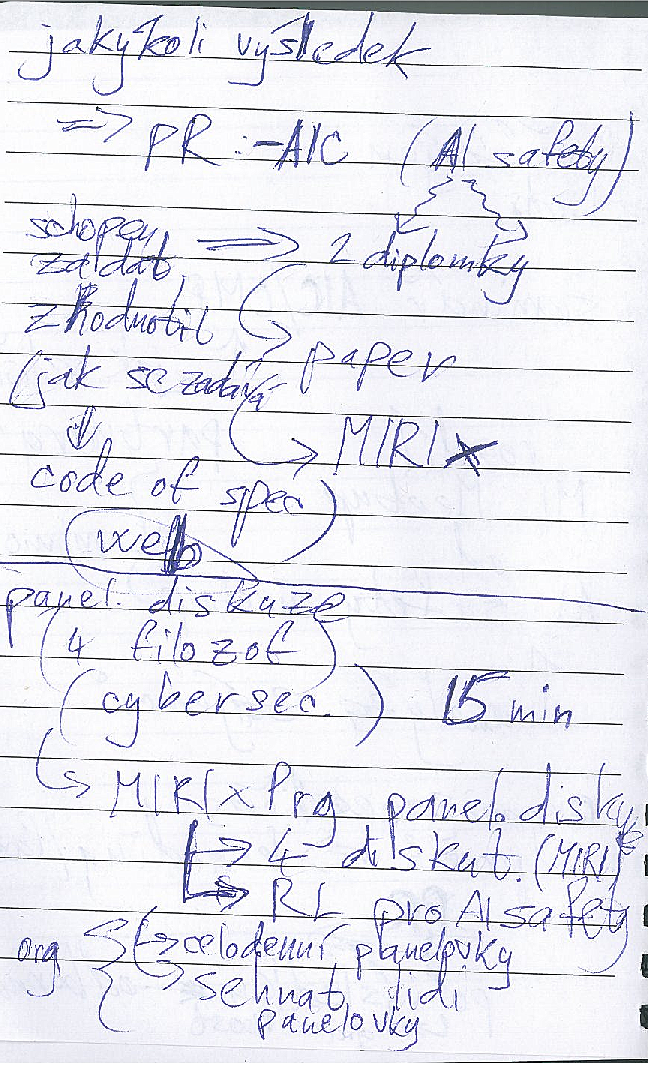 jakýkoli výsledek
=> PR :-AIC (AI safety)
schopen => 2 diplomky
zadat
zhodnotil
paper
(jak se zadává
MIRIx
code of spec)
web
panel. diskuze
(4 filozof)
(cybersec.) 15 min
MIRIxPrg panel. diskuze
4 diskut. (MIRI)
RL pro AI safety
org celodenní panelovky
sehnat lidi
panelovky